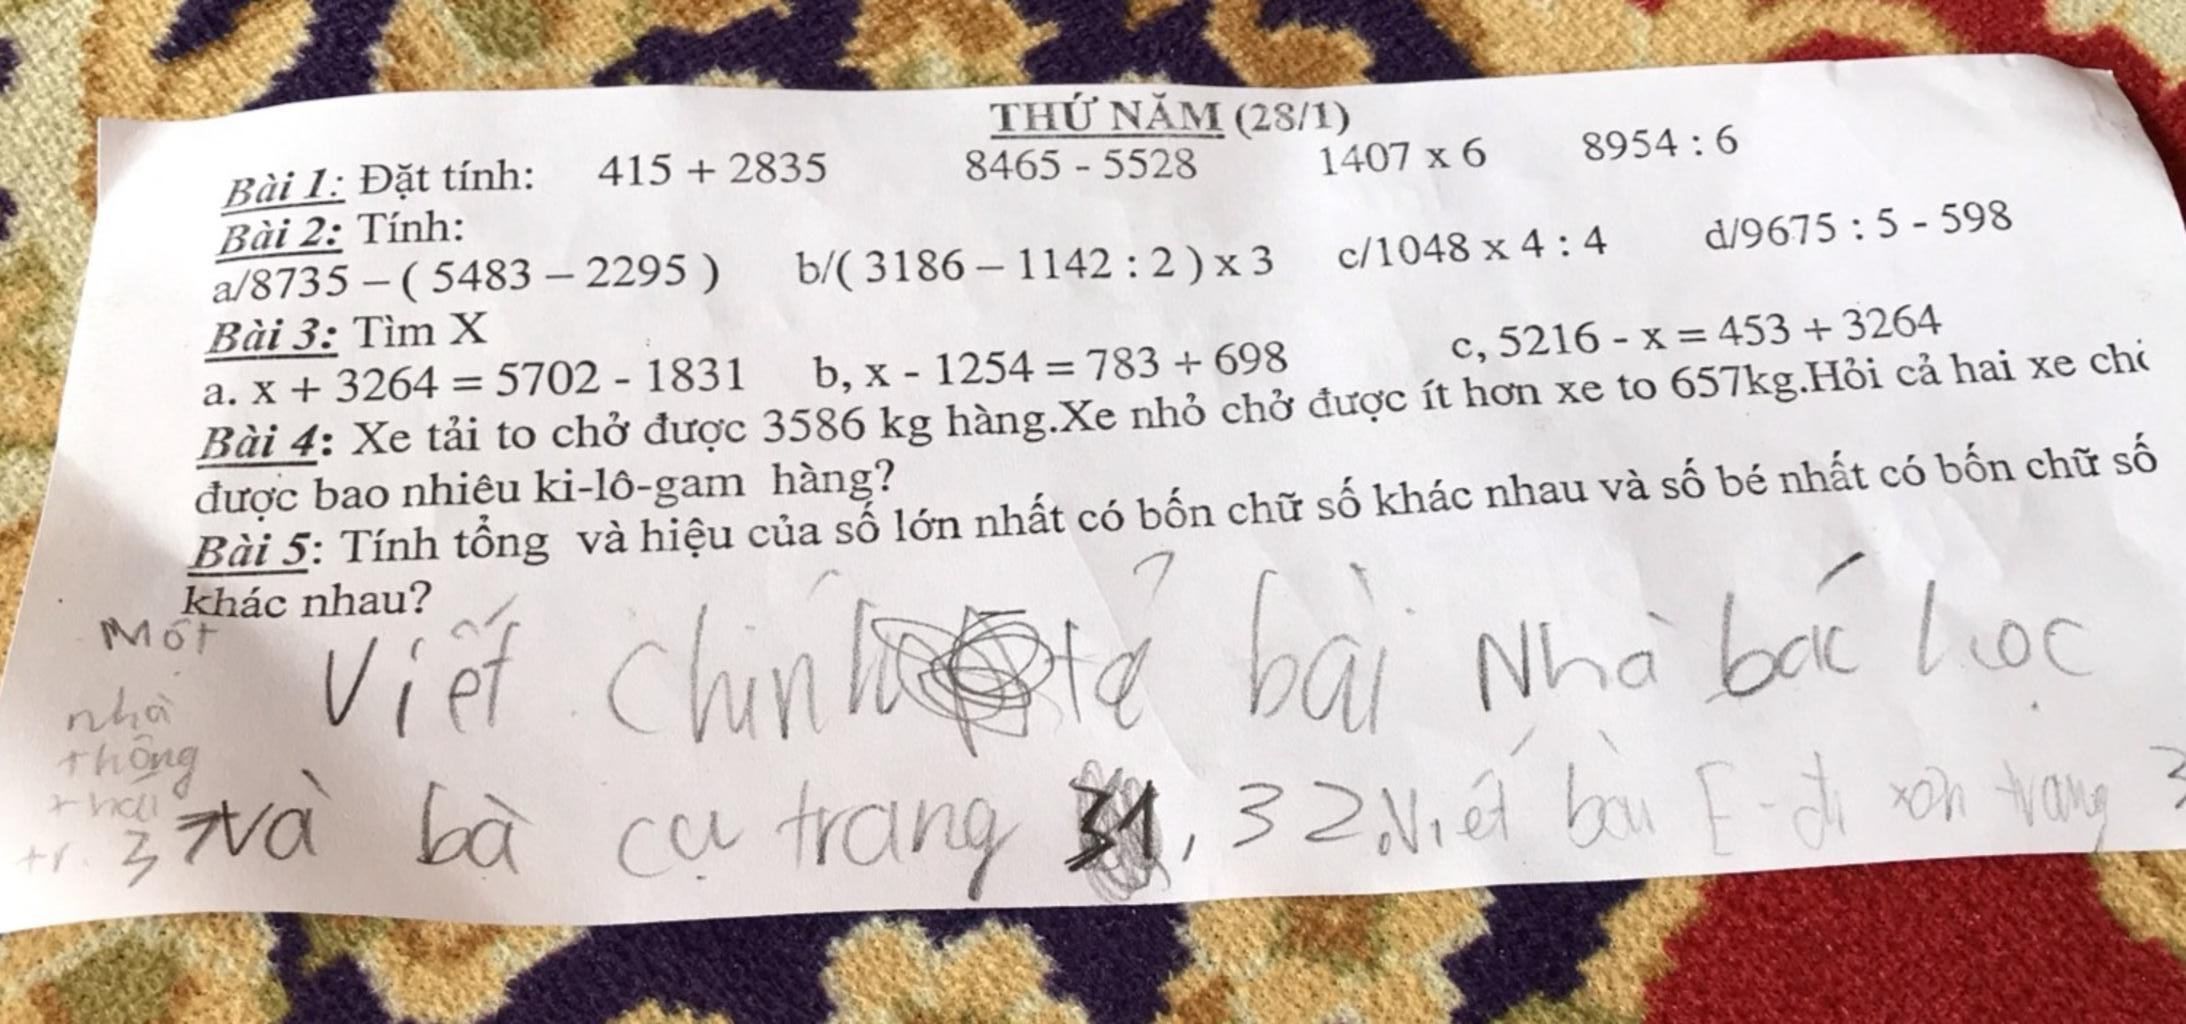 THỨ NĂM (28/1)
Bài 1: Đặt tính: 415 + 2835 8465 - 5528 1407 x 6 8954 : 6
Bài 2: Tính:
a/8735 – ( 5483 – 2295 ) b/( 3186 – 1142 : 2 ) x 3 c/1048 x 4 : 4 d/9675 : 5 - 598
Bài 3: Tìm X
a. x + 3264 = 5702 - 1831 b, x - 1254 = 783 + 698 c, 5216 - x = 453 + 3264
Bài 4: Xe tải to chở được 3586 kg hàng.Xe nhỏ chở được ít hơn xe to 657kg.Hỏi cả hai xe
được bao nhiêu ki-lô-gam hàng?
Bài 5: Tính tổng và hiệu của số lớn nhất có bốn chữ số khác nhau và số bé nhất có bốn chữ số
khác nhau?
Viết chính tả bài Nhà bác học
và bà cụ trang 31, 32. Viết bài Ê-đi xơn trang
Một
nhà
thông
thái
tr. 3